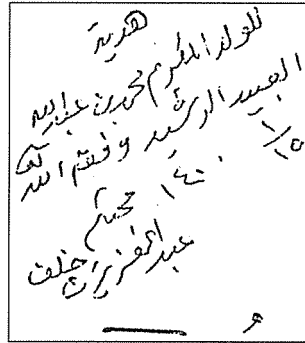 هدية
للولد المكرم محمد بن عبدالله
العبيد الرشيد وفقه الله
١/١٥
١٤٠٠
محبكم
عبدالعزيز خلف